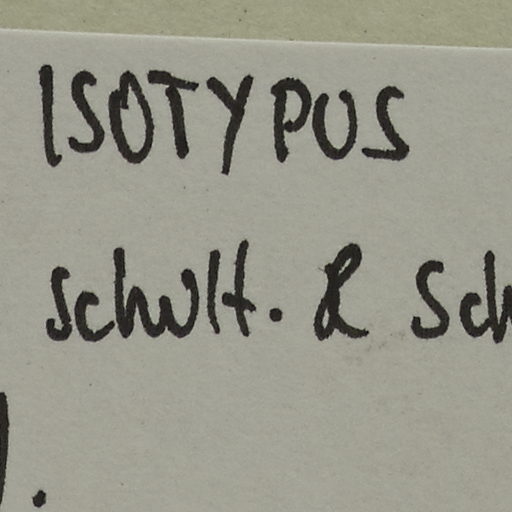 ISOTYPUS
Schult. & Sch
.